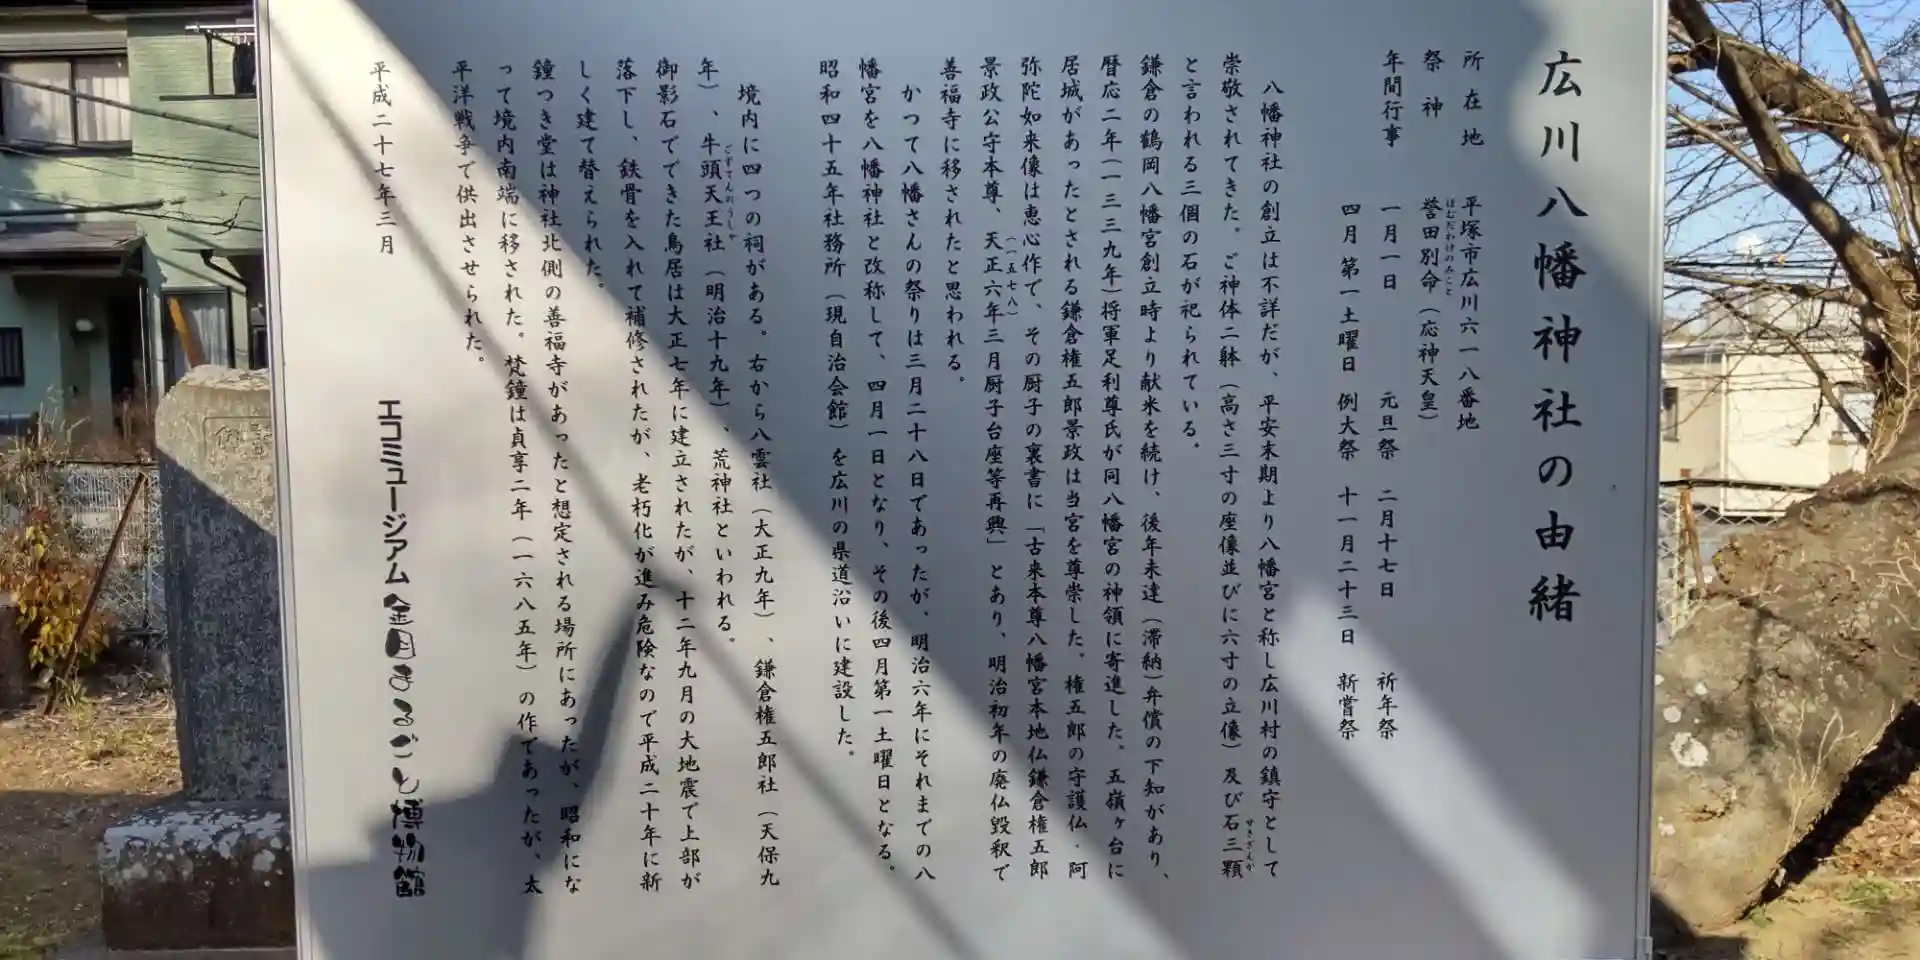 広川八幡神社の由緒
所在地 平塚市広川六一八番地
祭神 誉田別命(応神天皇)
ほむだわけのみこと
年間行事 一月一日 元旦祭 二月十七日 祈年祭
四月第一土曜日 例大祭 十一月二十三日 新嘗祭
八幡神社の創立は不詳だが、平安末期より八幡宮と称し広川村の鎮守として
崇敬されてきた。ご神体二躰(高さ三寸の座像並びに六寸の立像)及び石三顆
せきさんか
と言われる三個の石が祀られている。
鎌倉の鶴岡八幡宮創立時より献米を続け、後年未達(滞納)弁償の下知があり、
暦応二年(一三三九年)将軍足利尊氏が同八幡宮の神領に寄進した。五嶺ヶ台に
居城があったとされる鎌倉権五郎景政は当宮を尊崇した。権五郎の守護仏・阿
弥陀如来像は恵心作で、その厨子の裏書に「古来本尊八幡宮本地仏鎌倉権五郎
景政公守本尊、天正六年三月厨子台座等再興」とあり、明治初年の廃仏毀釈で
(一五七八)
善福寺に移されたと思われる。
かつて八幡さんの祭りは三月二十八日であったが、明治六年にそれまでの八
幡宮を八幡神社と改称して、四月一日となり、その後四月第一土曜日となる。
昭和四十五年社務所(現自治会館)を広川の県道沿いに建設した。
境内に四つの祠がある。右から八雲社(大正九年)、鎌倉権五郎社(天保九
年)、牛頭天王社(明治十九年)、荒神社といわれる。
ごずてんのうしゃ
御影石でできた鳥居は大正七年に建立されたが、十二年九月の大地震で上部が
落下し、鉄骨を入れて補修されたが、老朽化が進み危険なので平成二十年に新
しく建て替えられた。
鐘つき堂は神社北側の善福寺があったと想定される場所にあったが、昭和にな
って境内南端に移された。梵鐘は貞享二年(一六八五年)の作であったが、太
平洋戦争で供出させられた。
平成二十七年三月
エコミュージアム金目まるごと博物館